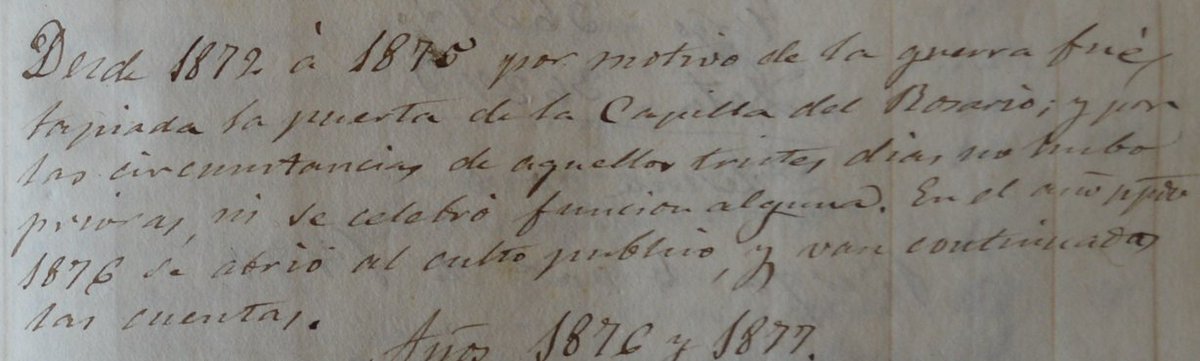 Desde 1872 à 1875 por motivo de la guerra fué
tapiada la puerta de la Capilla del Rosario; y por
las circunstancias de aquellos tristes dias no hubo
prioras, ni se celebró funcion alguna. En el año
1876 se abrió al culto publico, y van continuadas
las cuentas.
Años 1876 y 1877.